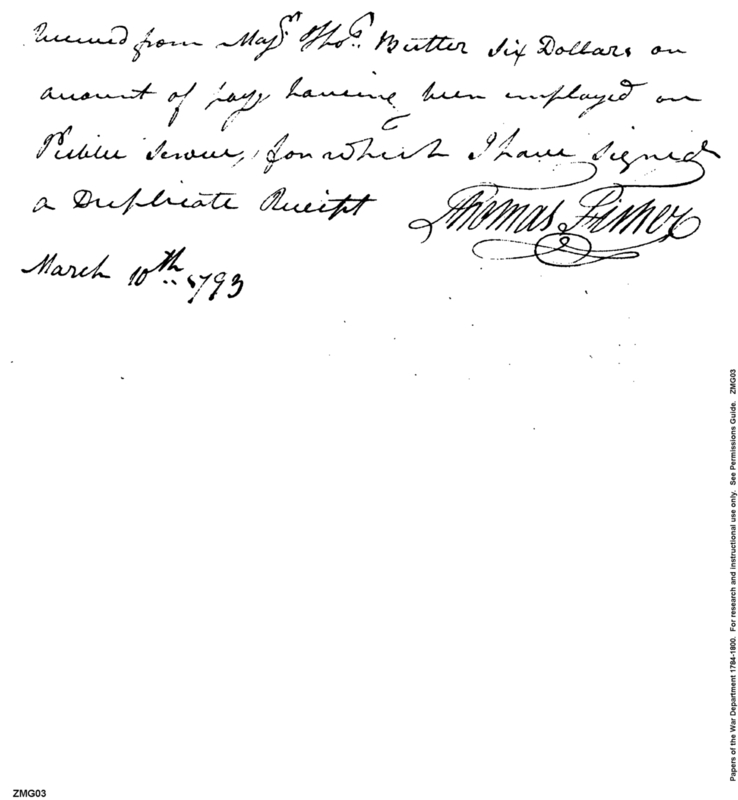 Received from Majr. Thos. Butler Six Dollars on
account of pay, having been employed on
Public Service, for which I have signed
a Duplicate Receipt Thomas Fisher
March 10th.. 1793
Papers of the War Department 1784-1800. For research and instructional use only. See Permissions Guide. ZMG03
ZMG03